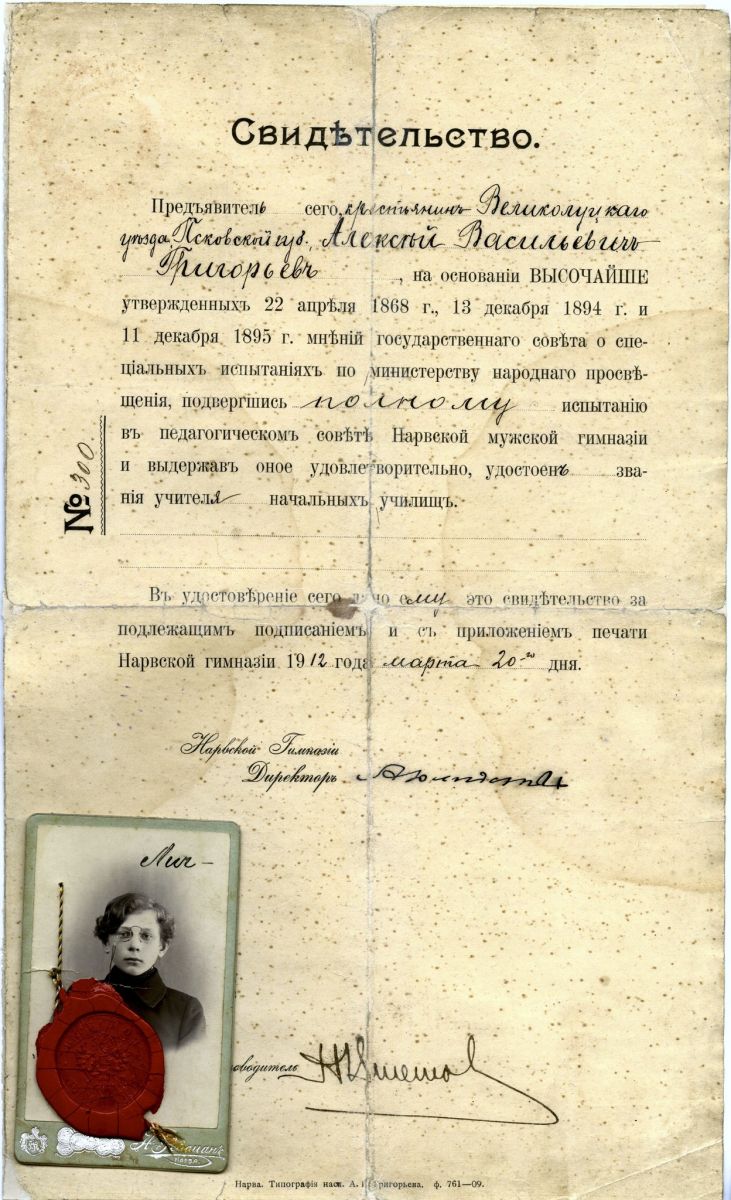 Свидѣтельство.
Предъявитель сего, крестьянинъ Великолуцкаго
уѣзда, Псковской губ., Алексѣй Васильевичъ
Григорьевъ, на основаніи ВЫСОЧАЙШЕ
утвержденныхъ 22 апрѣля 1868 г., 13 декабря 1894 г. и
11 декабря 1895 г. мнѣній государственнаго совѣта о спе-
ціальныхъ испытаніяхъ по министерству народнаго просвѣ-
щенія, подвергшись полному испытанію
въ педагогическомъ совѣтѣ Нарвской мужской гимназіи
и выдержавъ оное удовлетворительно, удостоенъ зва-
нія учителя начальныхъ училищъ.
№ 300.
Въ удостовѣреніе сего дано ему это свидѣтельство за
подлежащимъ подписаніемъ и съ приложеніемъ печати
Нарвской гимназіи 1912 года марта 20-го дня.
Нарвской Гимназіи
Директоръ
Лич-
оводитель
Нарва. Типографія насл. А. Григорьева. ф. 761—09.